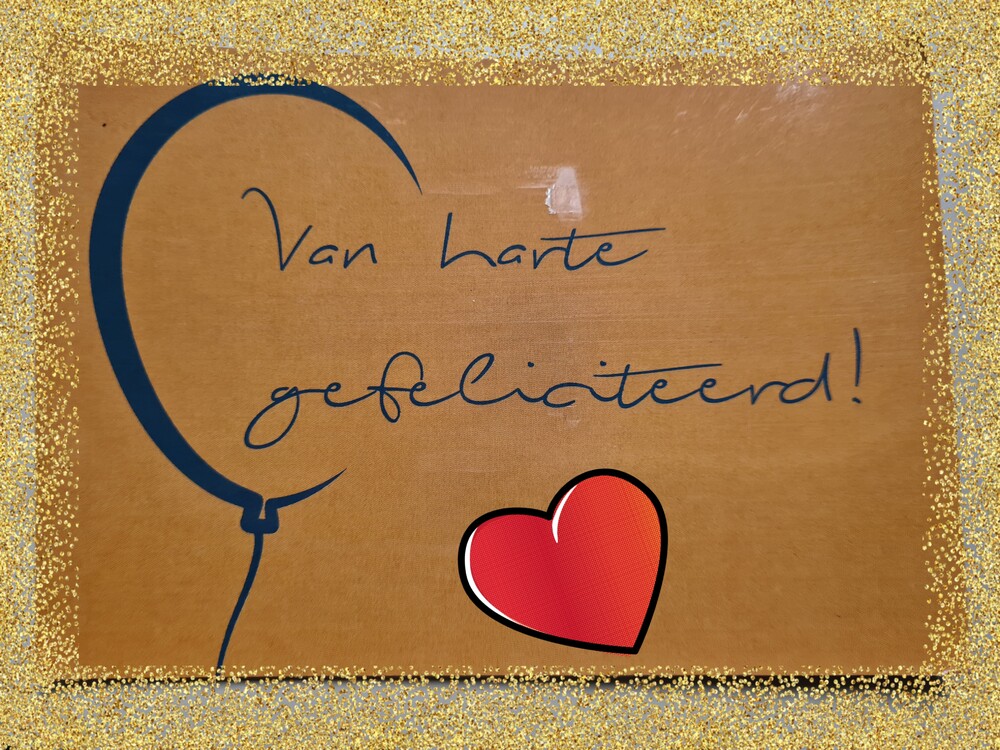 Van harte
gefeliciteerd!